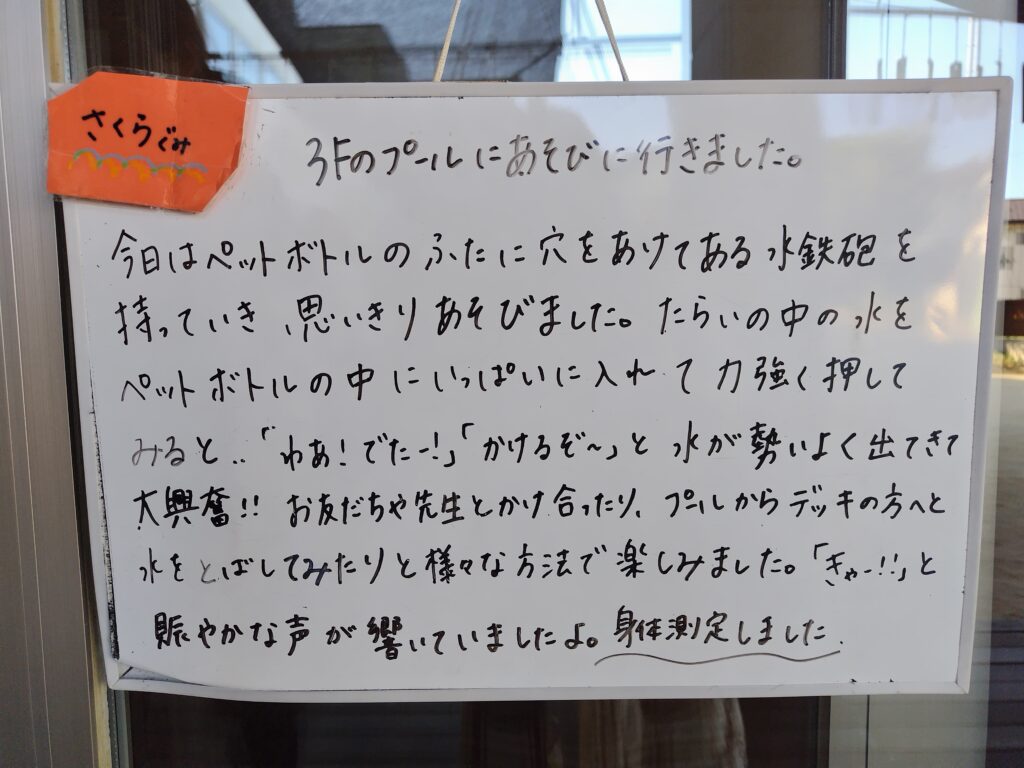 さくらぐみ
3Fのプールにあそびに行きました。
今日はペットボトルのふたに穴をあけてある水鉄砲を
持っていき、思いきりあそびました。たらいの中の水を
ペットボトルの中にいっぱいに入れて力強く押して
みると‥「わぁ!でたー!」「かけるぞ〜」と水が勢いよく出てきて
大興奮!!お友だちや先生とかけ合ったり、プールからデッキの方へと
水をとばしてみたりと様々な方法で楽しみました。「きゃー!!」と
賑やかな声が響いていましたよ。身体測定しました.